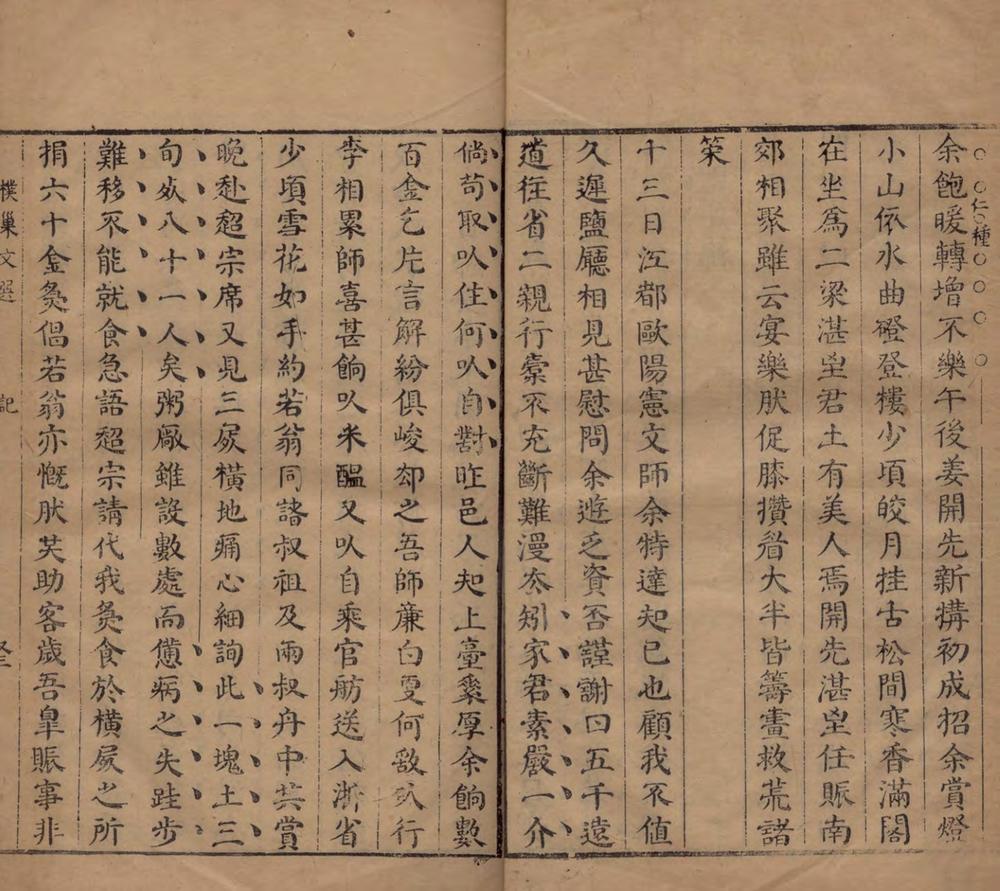 仁種
余飽暖轉增不樂午後姜開先新搆初成招余賞燈
小山依水曲磴登樓少頃皎月挂古松間寒香滿閣
在坐爲二梁湛至君土有美人焉開先湛至任賑南
郊相聚雖云宴樂肰促膝攢眉大半皆籌畫救荒諸
策
十三日江都歐陽憲文師余特達知已也顧我不值
久遲鹽廳相見甚慰問余遊乏資否謹謝曰五千遠
道往省二親行橐不充斷難漫然矧家君素嚴一介
倘苟取㕥住何㕥自對昨邑人知上臺褱厚余餉數
百金乞片言解紛俱峻却之吾師廉白更何敢㕥行
李相累師喜甚餉㕥米醞又㕥自乘官舫送入浙省
少頃雪花如手約若翁同諸叔祖及兩叔舟中共賞
晚赴超宗席又見三屍橫地痛心細詢此一塊土三
旬斃八十一人矣粥厰雖設數處而憊病之夫跬步
難移不能就食急語超宗請代我㷊食於橫屍之所
捐六十金㷊倡若翁亦慨肰共助客歲吾皐賑事非
樸巢文選 記